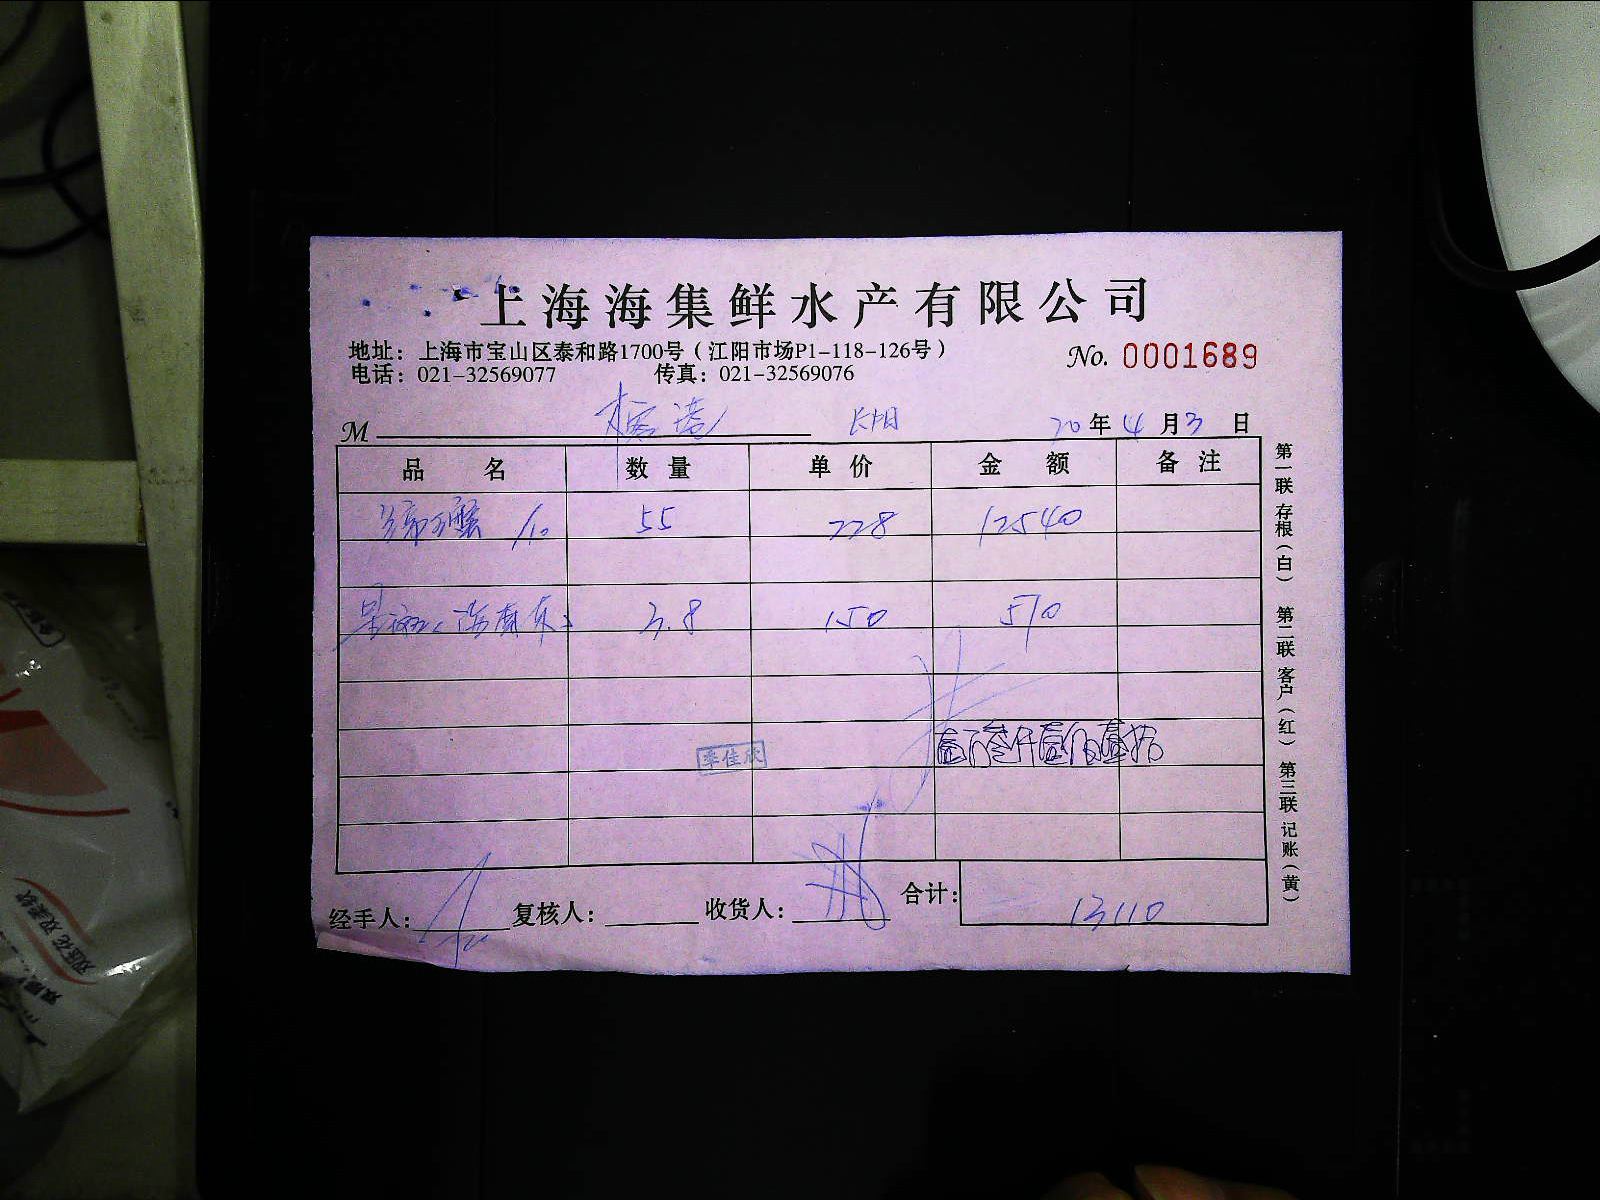 上海海集鲜水产有限公司
地址：上海市宝山区泰和路1700号（江阳市场P1-118-126号）
No. 0001689
电话：021-32569077 传真：021-32569076
M 长阳 20年4月3日
品名 数量 单价 金额 备注
蟹 /10 55 228 12540
3.8 150 570
壹万叁仟壹佰壹拾
季佳欣
经手人： 复核人： 收货人： 合计： 13110
第一联 存根（白） 第二联 客户（红） 第三联 记账（黄）